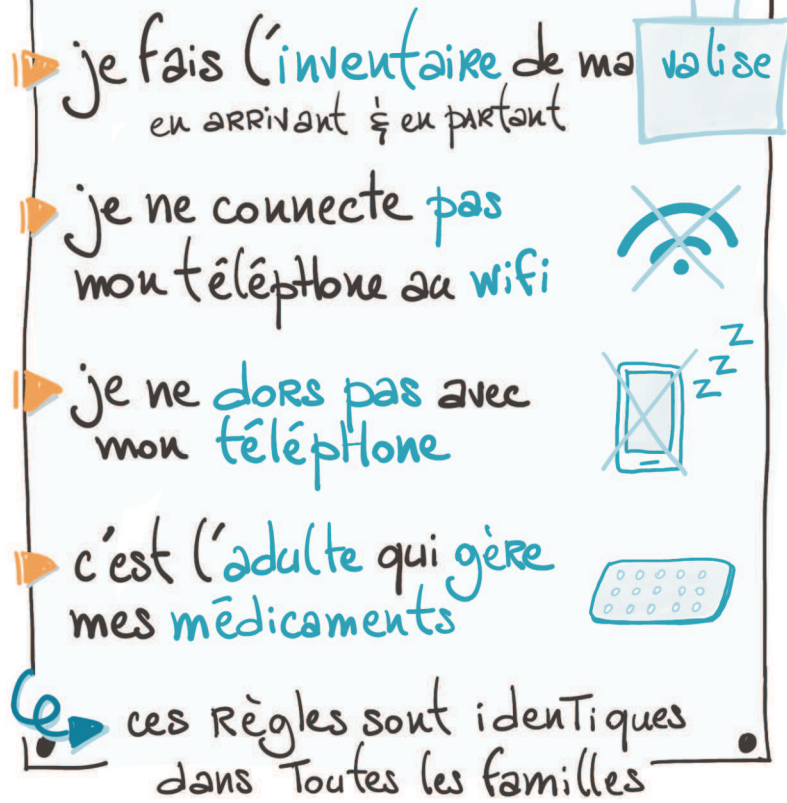 je fais l'inventaire de ma valise
en arrivant & en partant
je ne connecte pas
mon téléphone au wifi
je ne dors pas avec
mon téléphone
z z z
c'est l'adulte qui gère
mes médicaments
ces règles sont identiques
dans toutes les familles